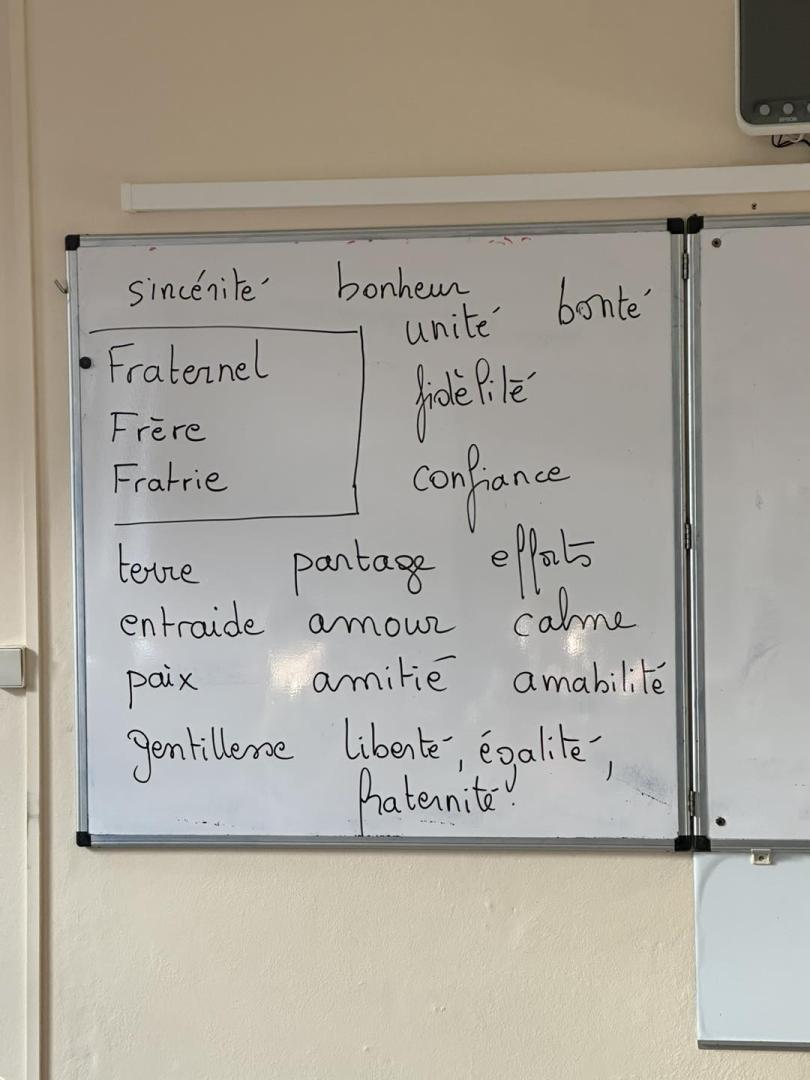 sincérité bonheur bonté
unité
Fraternel
fidélité
Frère
Fratrie confiance
terre partage efforts
entraide amour calme
paix amitié amabilité
gentillesse liberté, égalité,
fraternité.
EPSON